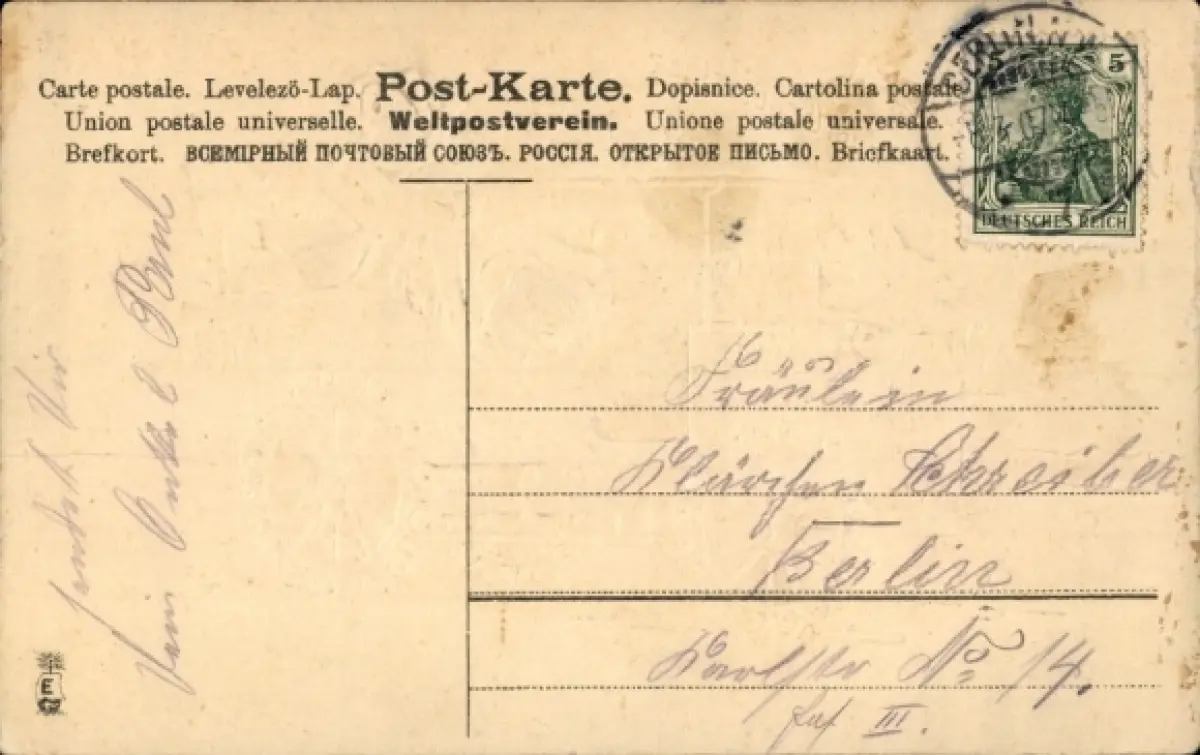 Carte postale. Levelezö-Lap. Post-Karte. Dopisnice. Cartolina postale
Union postale universelle. Weltpostverein. Unione postale universale.
Brefkort. ВСЕМІРНЫЙ ПОЧТОВЫЙ СОЮЗЪ. РОССІЯ. ОТКРЫТОЕ ПИСЬМО. Briefkaart.
BERLIN
5
DEUTSCHES REICH
sendet Dir
Dein Onkel Paul
Fräulein
Klärchen Schreiber
Berlin
Karlstr No 14.
III.
E